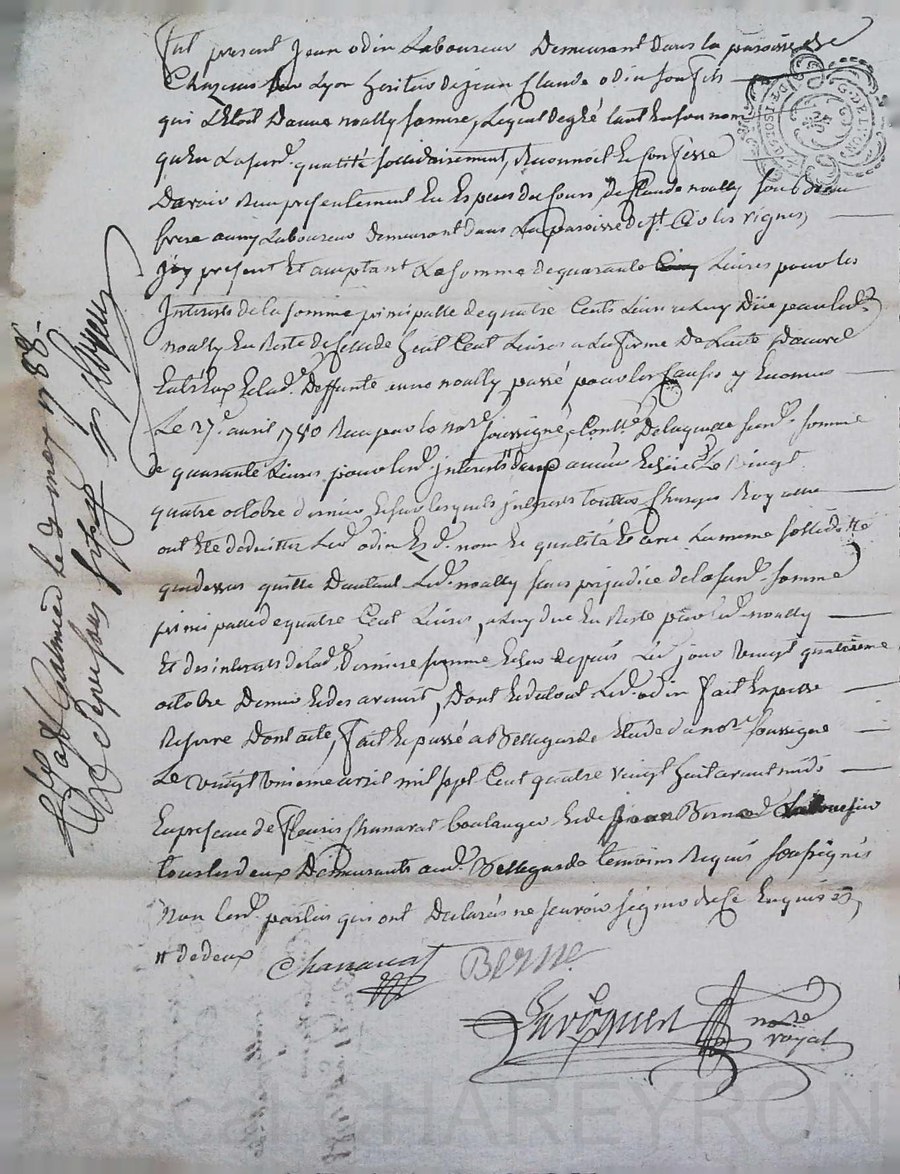 Fut present Jean odin Laboureur Demeurant dans la paroisse de
Chazeus Lyon heritier de jean Claude odin son fils
qui L'Etoit Danne noally sa mere, Lequel degré tant En son nom
qu'en Lasusd. qualité sollidairement, Reconnoit Et Confesse
Davoir Reçu presentement En Especes du Cours De Claude noally son Beau
frere aussy Laboureur demeurant dans La paroisse de st. les vignes
jcy present Et acceptant La somme de quarante Livres pour les
Interests de la somme principalle de quatre Cents Livres a Luy Düe par led.
noally En Reste de Celle de huit Cent Livres a La forme De Lacte
Entr'Eux Et lad. Deffunte anne noally passé pour les Causes y Enoncées
Le 27e. avril 1780 Recu par le nore. soussigné, De laquelle susd. somme
de quarante Livres, pour les Interests année Echüe Le vingt
quatre octobre dernier Et sur lesquels jnterests touttes Charges Royalles
ont Eté déduittes Led. odin Esd. nom Et qualité Et avec La meme sollidité
que dessus quitte Dautant Led. noally sans prejudice de la susd. somme
principalle de quatre Cent Livres, a Luy due En Reste par led. noally
Et des interets de lad. Derniere somme depuis Led. jour vingt quatrieme
octobre Dernier Et des avenir, Dont Et du tout Led. odin fait Expresse
Reserve Dont acte, fait Et passé a Bellegarde Etude du nore. soussigné
Le vingt unieme avril mil sept Cent quatre vingt huit avant midy
En presence de fleury Chanavat boulanger Et de Jean Berne Laboureur
tous les deux Demeurants aud. Bellegarde temoins Requis soussignés
Non Lesd. parties qui ont Declarés ne sçavoir signer de ce Enquis
de deux
Chanavat
Berne
nore
royal
Galmier le 2 may 1788.